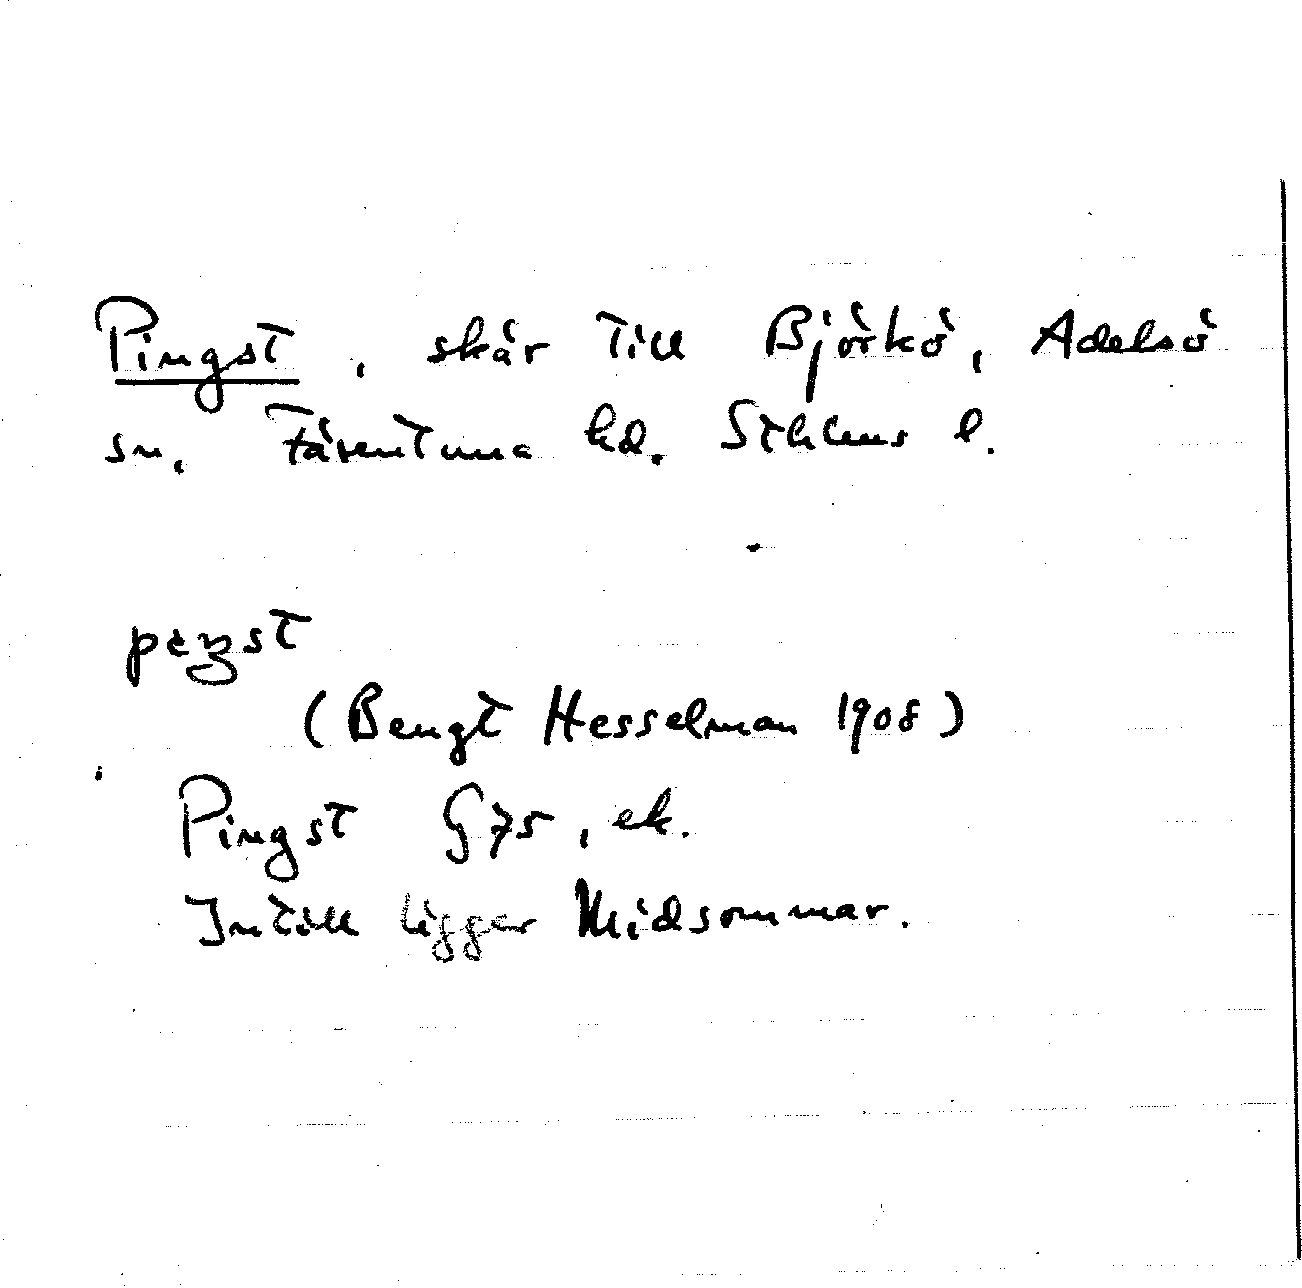 Pingst, skär till Björkö, Adelsö
sn, Färentuna hd. Sthlms l.
peŋst
(Bengt Hesselman 1908)
Pingst G 75, ek.
Intill ligger Midsommar.